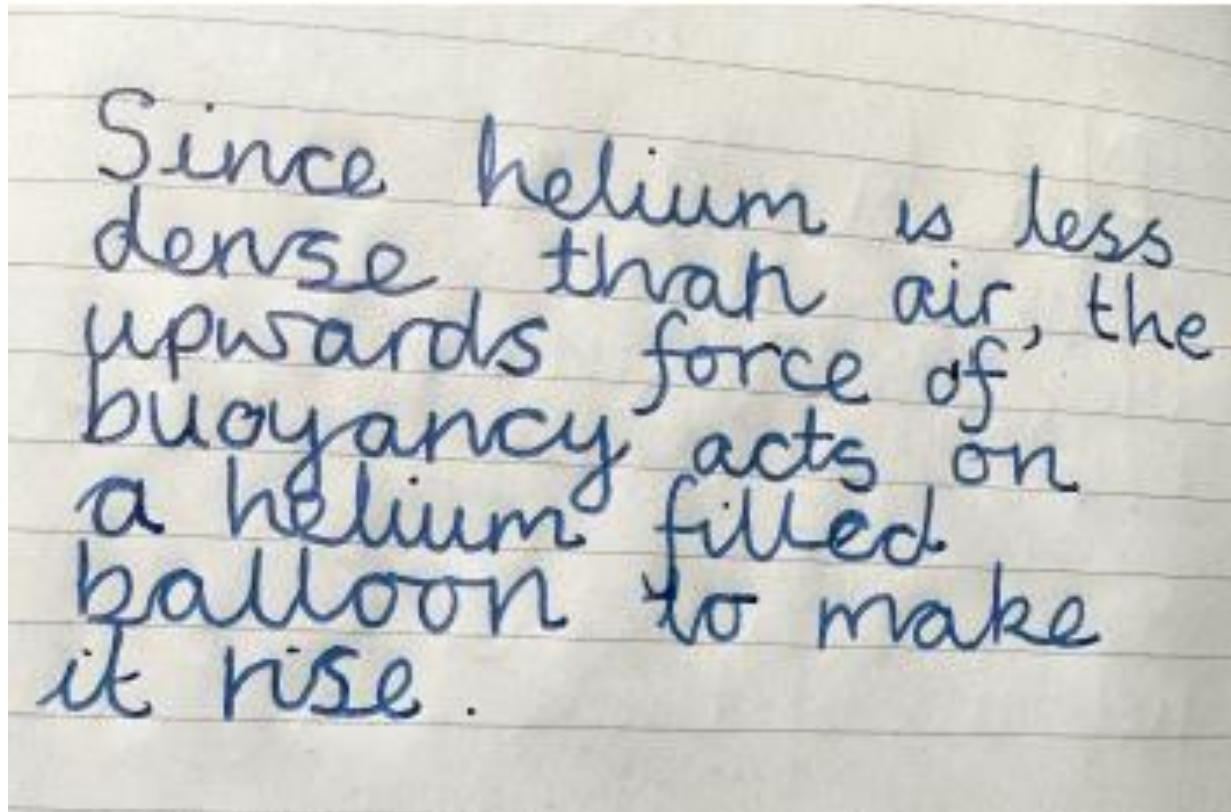 Since helium is less
dense than air, the
upwards force of
buoyancy acts on
a helium filled
balloon to make
it rise.